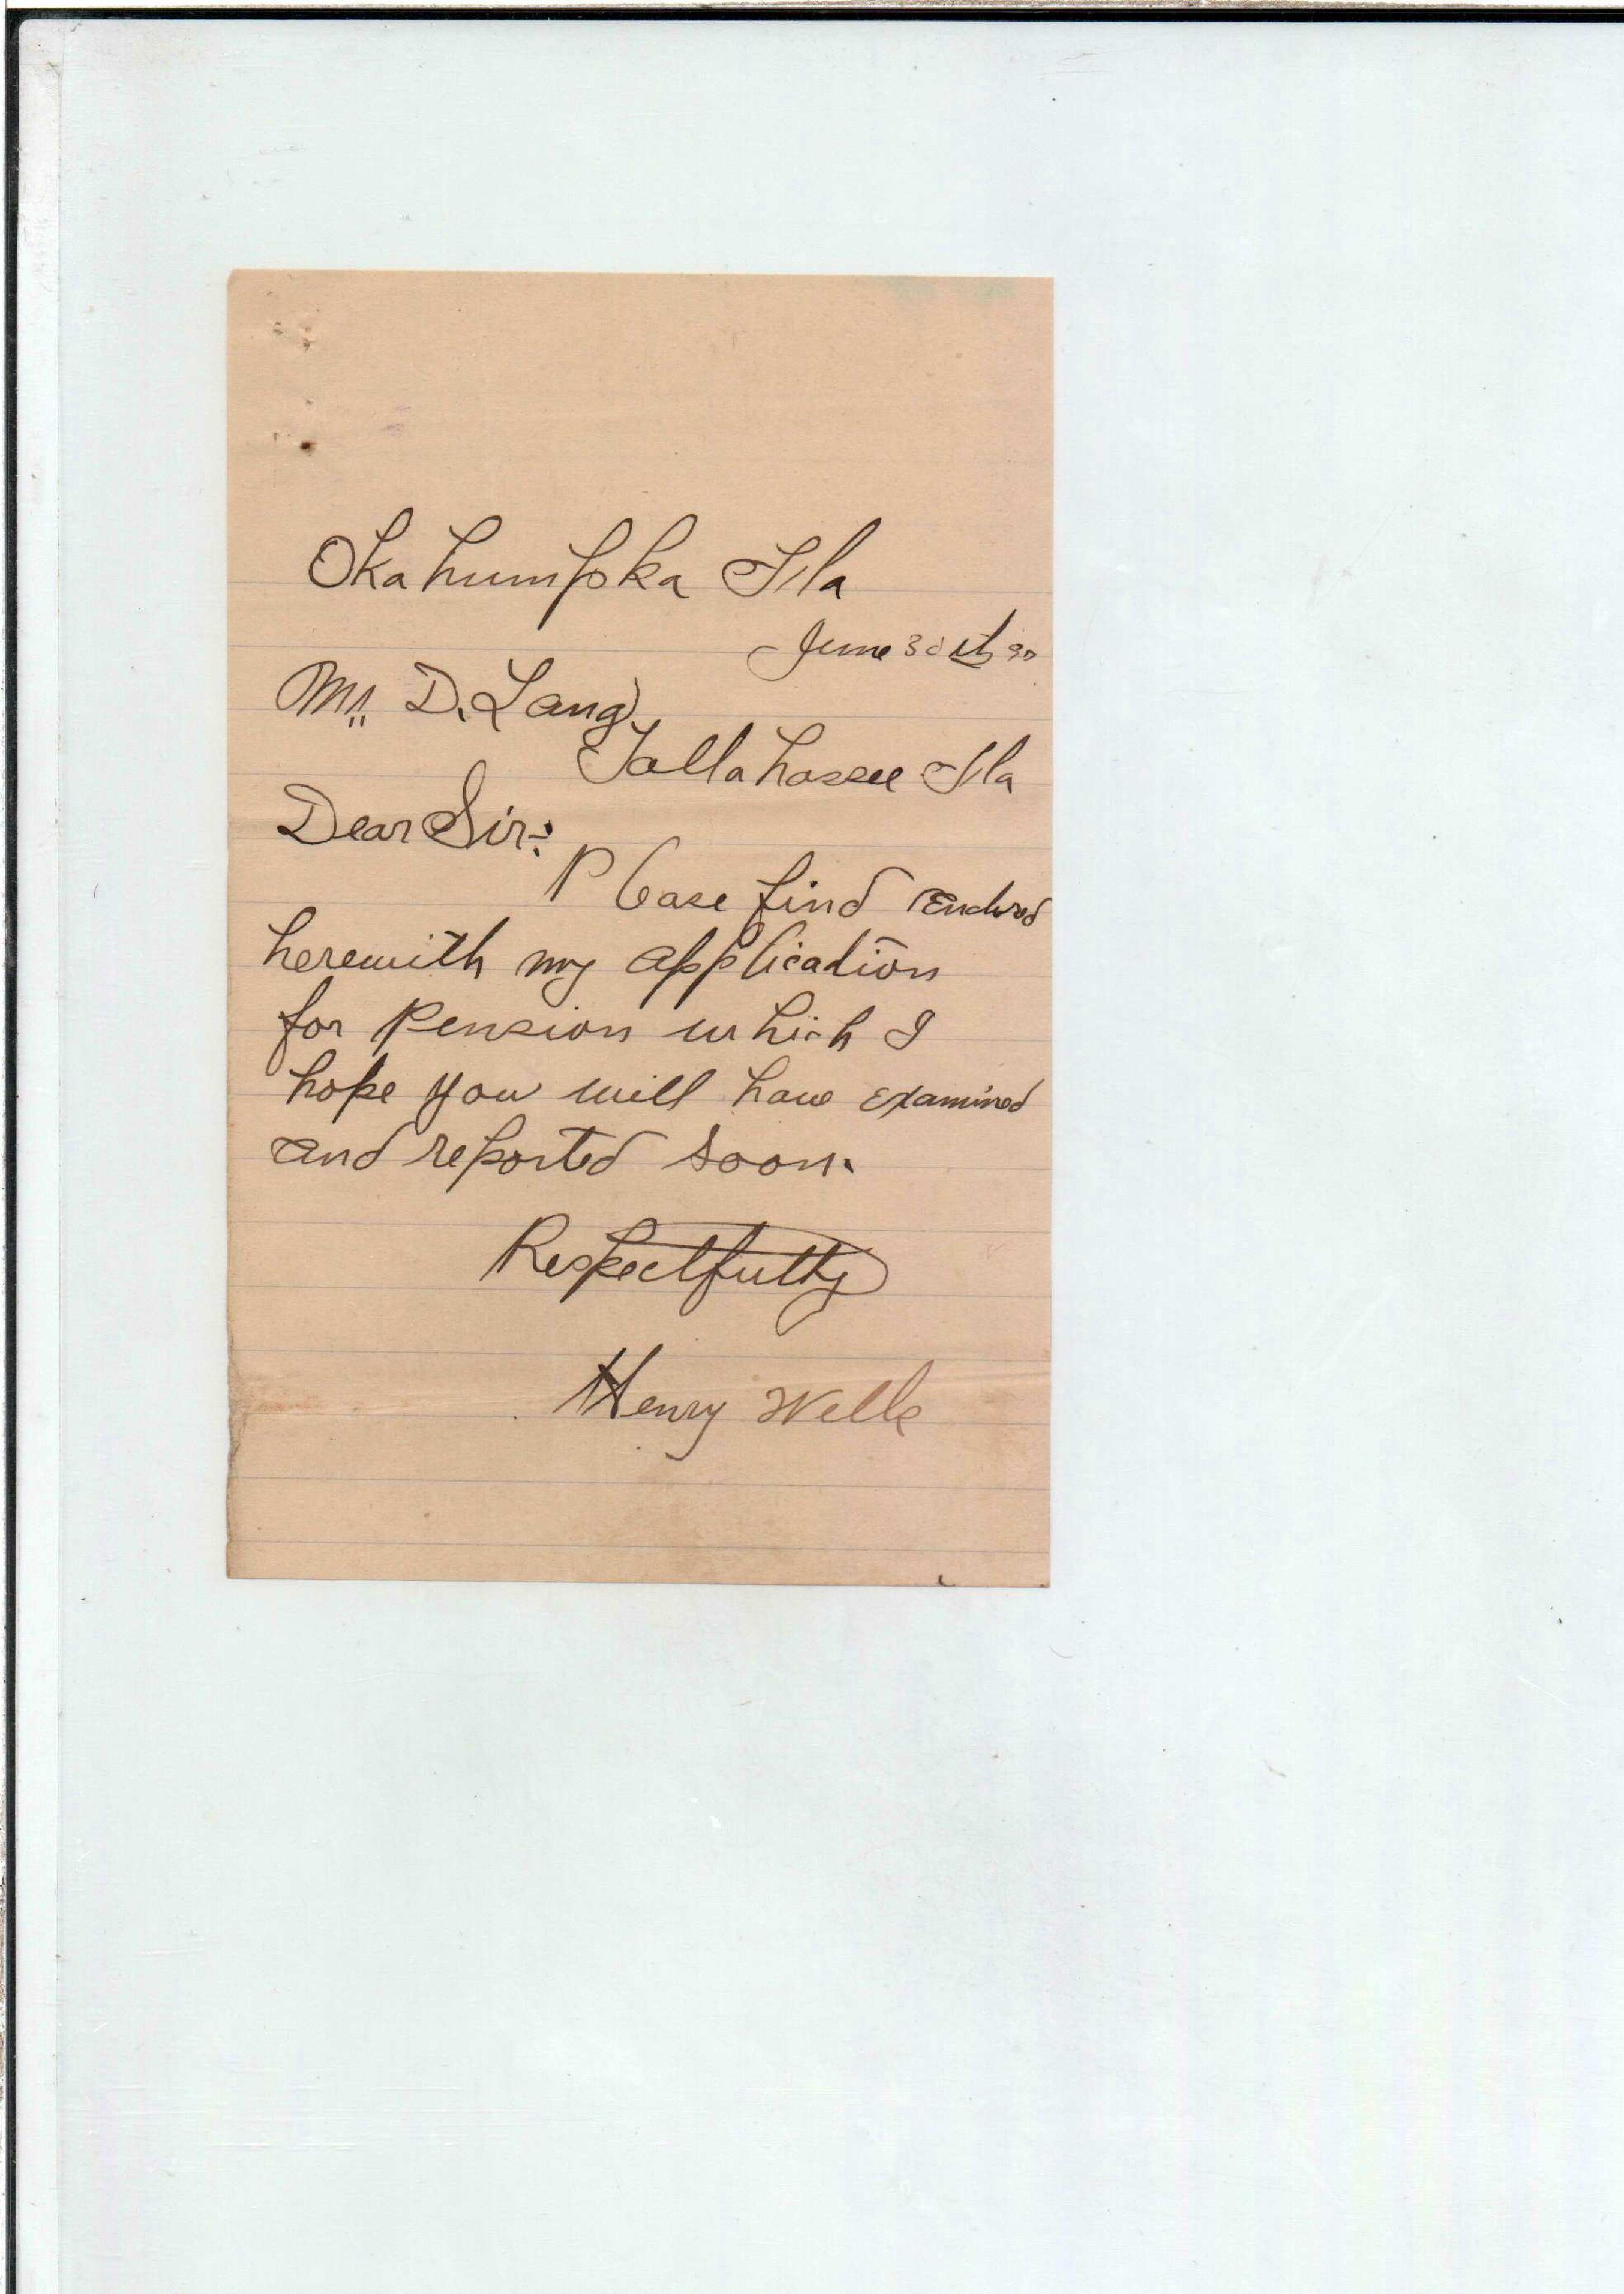 Okahumpka Fla
June 30th 90
Mr. D. Lang
Tallahassee Fla
Dear Sir:
Please find Enclosed
herewith my application
for Pension which I
hope you will have examined
and reported soon.
Respectfully
Henry Wells